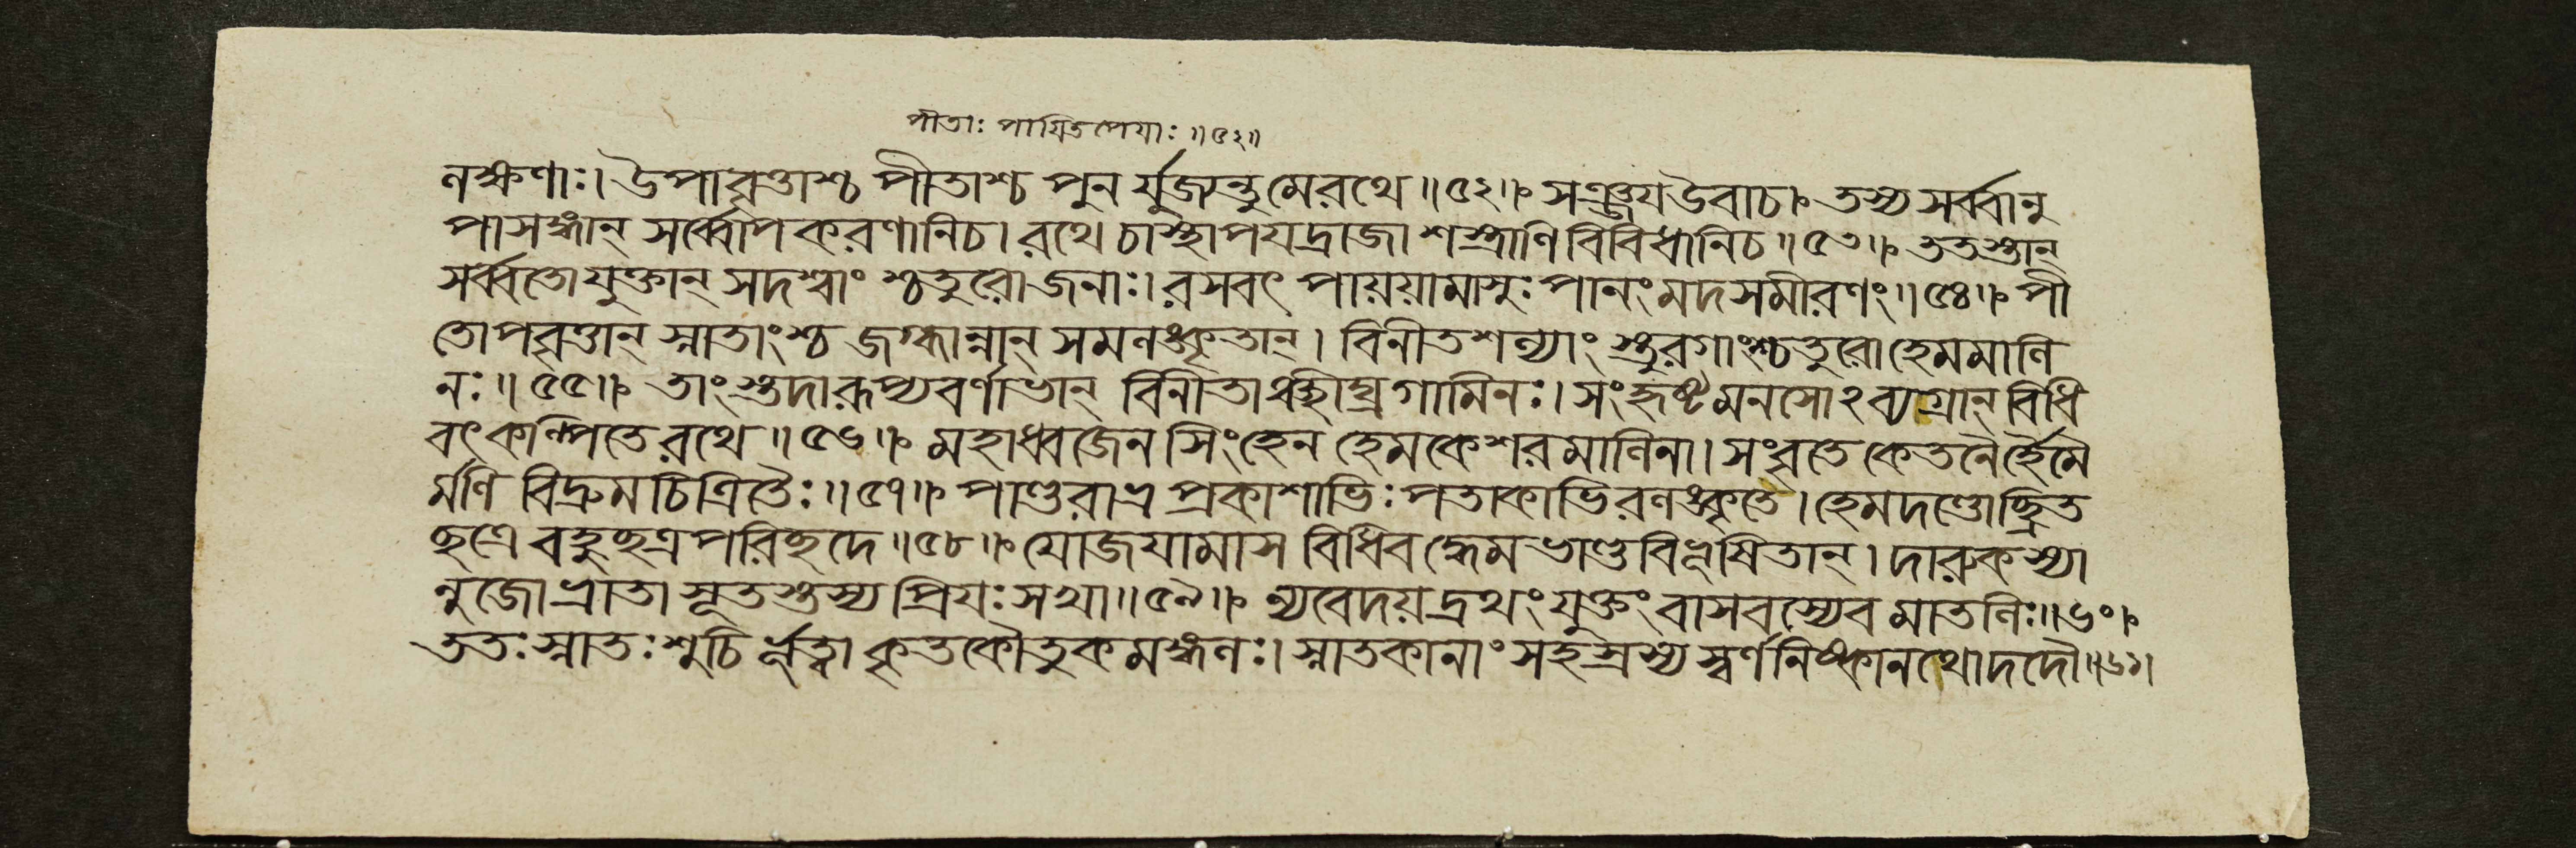 পীতাঃ পায়িতপেয়াঃ ॥৫২॥
লক্ষণাঃ। উপাবৃত্তাশ্চ পীতাশ্চ পুন র্যুজ্যন্তু মে রথে ॥৫২॥ সঞ্জয উবাচ। তস্য সর্ব্বানু
পাসঙ্গান্ সর্ব্বোপকরণানিচ। রথে চাস্থাপযদ্রাজা শস্ত্রাণি বিবিধানিচ ॥৫৩॥ ততস্তান্
সর্ব্বতো যুক্তান্ সদশ্বাং শ্চতুরো জনাঃ। রসবৎ পায়য়ামাসুঃ পানং মদসমীরণং ॥৫৪॥ পী
তোপবৃত্তান্ স্নাতাংশ্চ জগ্ধান্নান্ সমলঙ্কৃতান্। বিনীতশল্যাং স্তুরগাংশ্চতুরো হেমমালি
নঃ ॥৫৫॥ তাংস্তু দারূপ্যবর্ণাভান্ বিনীতাঞ্ছীঘ্রগামিনঃ। সংহৃষ্টমনসোঽব্যগ্রান্ বিধি
বৎ কল্পিতে রথে ॥৫৬॥ মহাধ্বজেন সিংহেন হেমকেশরমালিনা। সংবৃতে কেতনৈর্হৈমৈ
র্মণি বিদ্রুমচিত্রিতৈঃ ॥৫৭॥ পাণ্ডুরাভ্র প্রকাশাভিঃ পতাকাভিরলঙ্কৃতে। হেমদণ্ডোচ্ছ্রিত
ছত্রে বহুছত্রপরিছদে ॥৫৮॥ যোজযামাস বিধিবদ্ধেমভাণ্ডবিভূষিতান্। দারুকস্যা
নুজো ভ্রাতা সূতস্তস্য প্রিযঃ সখা ॥৫৯॥ ন্যবেদয়দ্রথং যুক্তং বাসবস্যেব মাতলিঃ ॥৬০॥
ততঃ স্নাতঃ শুচি র্ভূত্বা কৃতকৌতুকমঙ্গলঃ। স্নাতকানাং সহস্রস্য স্বর্ণনিষ্কানথোদদৌ ॥৬১।